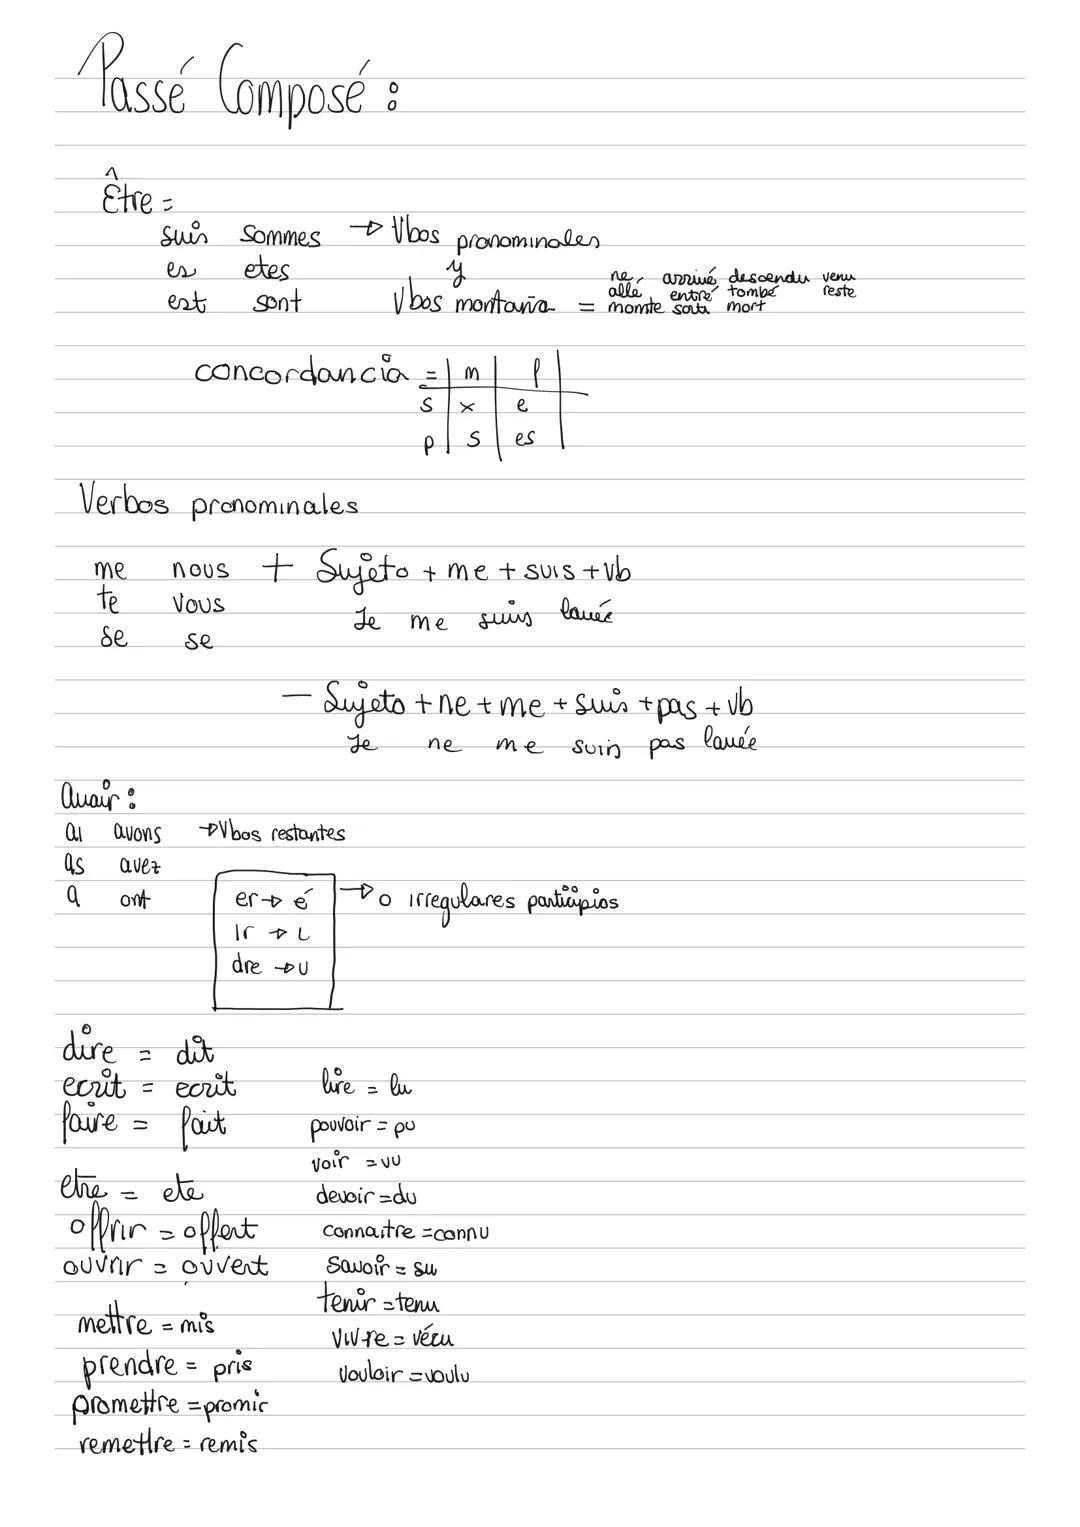 Passé Composé :
Être =
suis sommes → Vbos pronominales
es etes y
est sont Vbos montaña =
ne, arrivé descendu venu
allé entré tombé reste
momte mort
concordancia = m f
s x e
p s es
Verbos pronominales
me nous + Sujeto + me + suis + vb
te vous Je me suis lavée
se se
- Sujeto + ne + me + suis + pas + vb
Je ne me suis pas lavée
Avair :
ai avons → Vbos restantes
as avez
a ont
er → é → o irregulares participios
ir → i
dre → u
dire = dit
ecrit = ecrit lire = lu
faire = fait pouvoir = pu
voir = vu
etre = ete devoir = du
offrir = offert connaitre = connu
ouvrir = ouvert savoir = su
tenir = tenu
mettre = mis vivre = vécu
prendre = pris vouloir = voulu
promettre = promir
remettre = remis